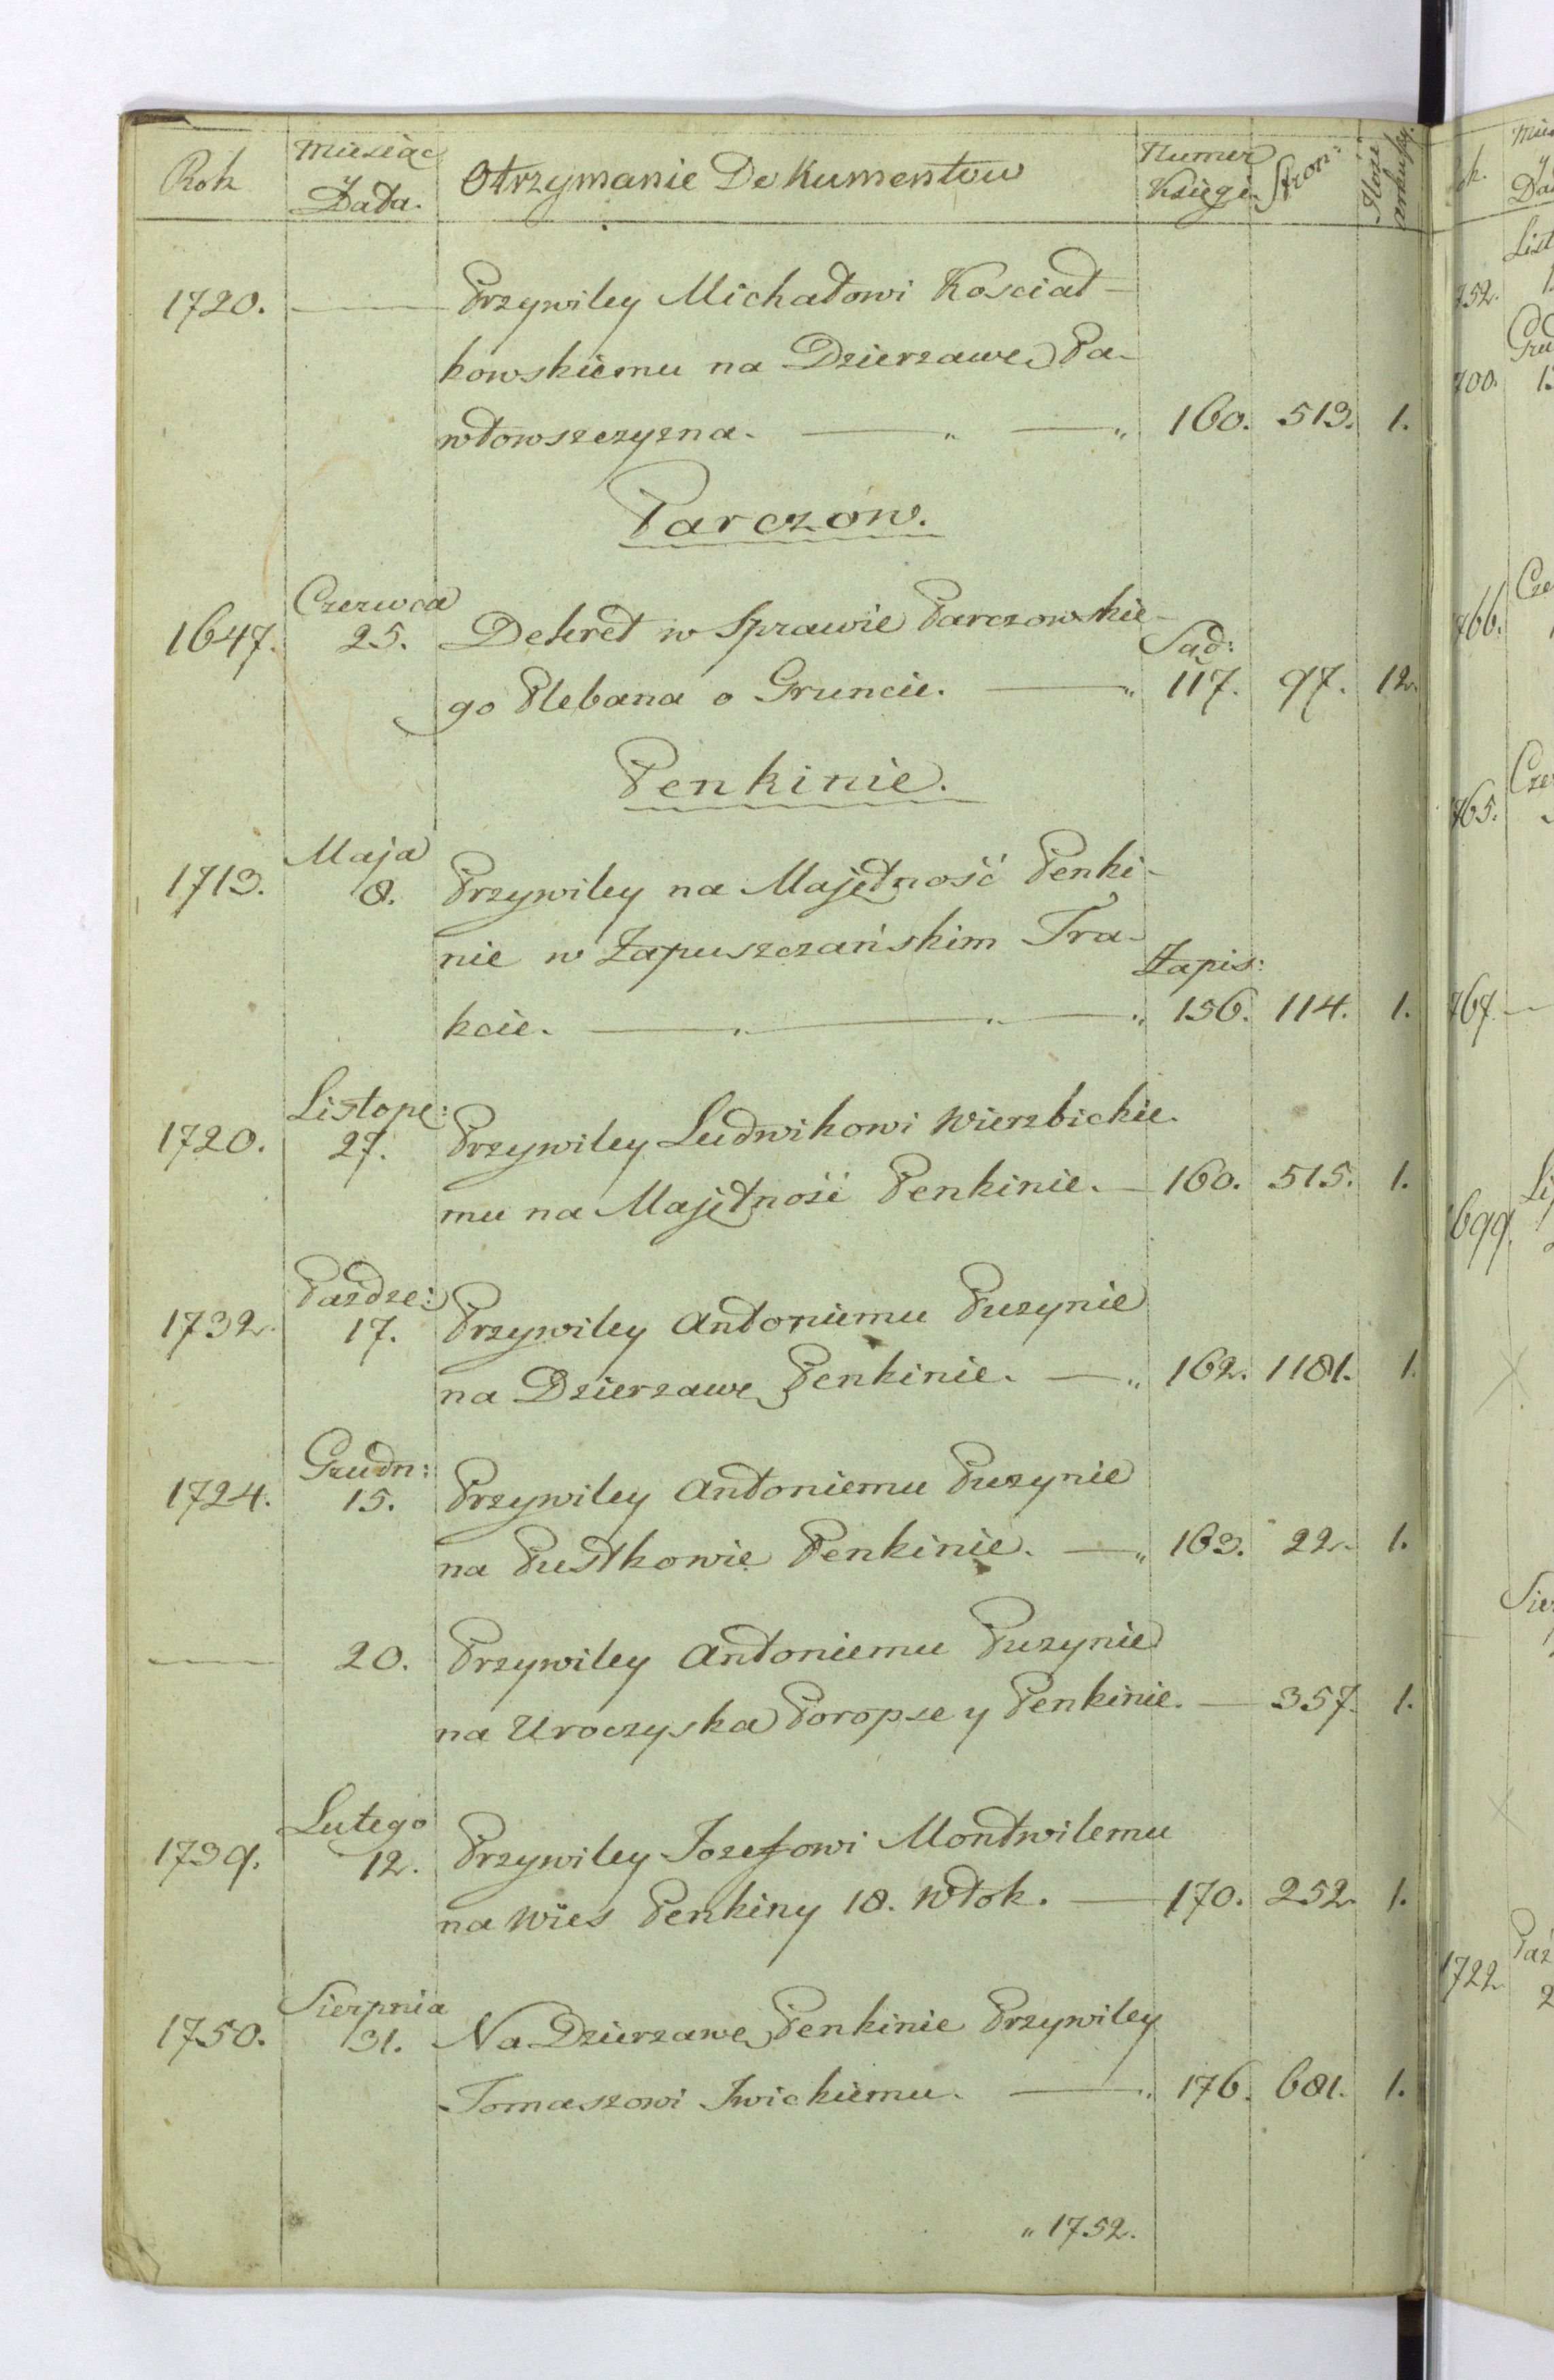 Rok Miesiąc y Data. Otrzymanie Dokumentow Numer Księgi Stron: Ilość arkuszy.
1720. — Przywiley Michałowi Kosciał-
kowskiemu na Dzierzawę Pa-
włowszczyzna. — „ — „ 160. 513. 1.
Parczow.
1647. Czerwca 25. Dekret w Sprawie Parczowskie-
go Plebana o Gruncie. — „ Sąd: 117. 97. 12.
Penkinie.
1713. Maja 8. Przywiley na Majętność Penki-
nie w Zapuszczańskim Tra-
kcie. — „ — „ — „ Zapis: 156. 114. 1.
1720. Listope: 27. Przywiley Ludwikowi Wierzbickie-
mu na Majętność Penkinie. — 160. 515. 1.
1732. Paźdze: 17. Przywiley Antoniemu Puzynie
na Dzierzawę Penkinie. — „ 162. 1181. 1.
1724. Grudn: 15. Przywiley Antoniemu Puzynie
na Pustkowie Penkinie. — „ 163. 22. 1.
— 20. Przywiley Antoniemu Puzynie
na Uroczyska Poropse y Penkinie. — 357. 1.
1739. Lutego 12. Przywiley Jozefowi Montwilemu
na Wies Penkiny 18. Włok. — 170. 252. 1.
1750. Sierpnia 31. Na Dzierzawę Penkinie Przywiley
Tomaszowi Iwickiemu. — „ 176. 681. 1.
„ 1752.